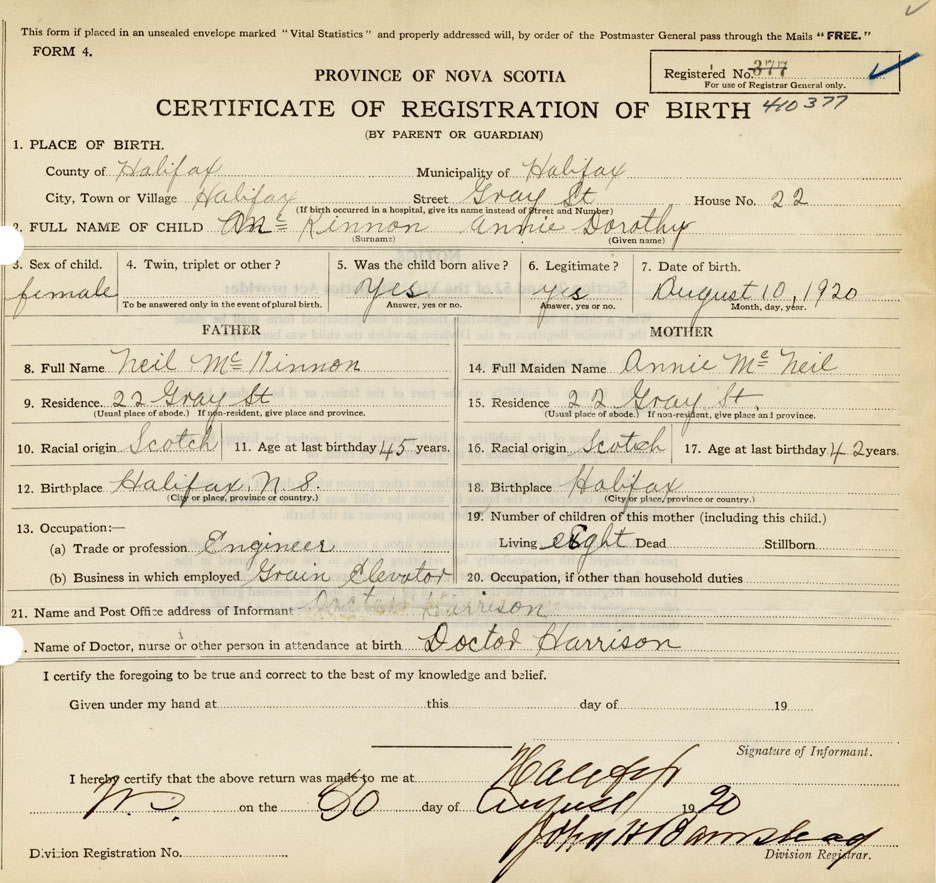 This form if placed in an unsealed envelope marked "Vital Statistics" and properly addressed will, by order of the Postmaster General pass through the Mails "FREE."
FORM 4.
Registered No. 377
For use of Registrar General only.
PROVINCE OF NOVA SCOTIA
CERTIFICATE OF REGISTRATION OF BIRTH 410377
(BY PARENT OR GUARDIAN)
1. PLACE OF BIRTH.
County of Halifax Municipality of Halifax
City, Town or Village Halifax Street Gray St House No. 22
(If birth occurred in a hospital, give its name instead of Street and Number)
2. FULL NAME OF CHILD Mc Kinnon Annie Dorothy
(Surname) (Given name)
3. Sex of child. 4. Twin, triplet or other? 5. Was the child born alive? 6. Legitimate? 7. Date of birth.
female Yes yes August 10, 1920
To be answered only in the event of plural birth. Answer, yes or no. Answer, yes or no. Month, day, year.
FATHER MOTHER
8. Full Name Neil Mc Kinnon 14. Full Maiden Name Annie Mc Neil
9. Residence 22 Gray St 15. Residence 22 Gray St.
(Usual place of abode.) If non-resident, give place and province. (Usual place of abode.) If non-resident, give place and province.
10. Racial origin Scotch 11. Age at last birthday 45 years. 16. Racial origin Scotch 17. Age at last birthday 42 years.
12. Birthplace Halifax, N.S. 18. Birthplace Halifax
(City or place, province or country.) (City or place, province or country.)
13. Occupation:— 19. Number of children of this mother (including this child.)
(a) Trade or profession Engineer Living eight Dead Stillborn
(b) Business in which employed Grain Elevator 20. Occupation, if other than household duties
21. Name and Post Office address of Informant Doctor Harrison
. Name of Doctor, nurse or other person in attendance at birth Doctor Harrison
I certify the foregoing to be true and correct to the best of my knowledge and belief.
Given under my hand at this day of 19
Signature of Informant.
I hereby certify that the above return was made to me at Halifax
N.S. on the 30 day of August 1920
John H Barnstead
Division Registration No. Division Registrar.